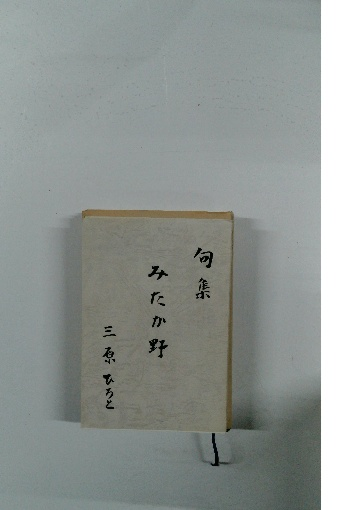 句集
みたか野
三原ひろと